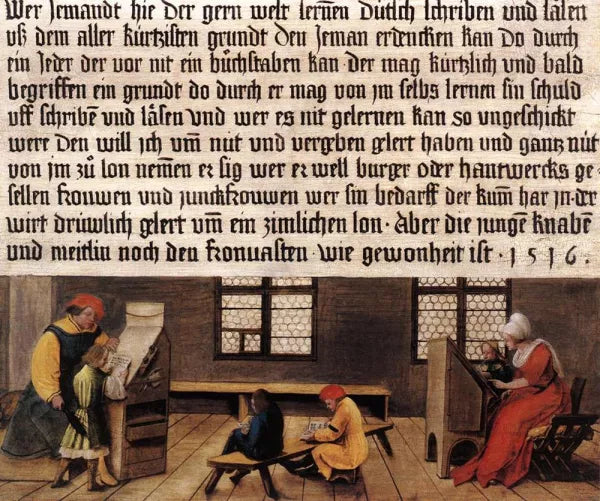 Wer Jemandt hie der gern welt lernen Dütsch schriben und läsen
uß dem aller kürtzisten grundt den Jeman erdencken kan Do durch
ein Jeder der vor nit ein büchstaben kan der mag kürtzlich und bald
begriffen ein grundt do durch er mag von jm selbs lernen sin schuld
uff schribē und läsen Und wer es nit gelernen kan so ungeschickt
were Den will ich um̄ nüt und vergeben glert haben und gantz nüt
von jm zů lon nemen er sig wer er well burger oder hantwercks ge⸗
sellen frouwen und junckfrouwen wer sin bedarff der kum̄ har jn⸗der
wirt drüwlich glert um̄ ein zimlichen lon · Aber die jungē knabē
und meitlin noch den fronuasten · wie gewonheit ist · 1516 ·